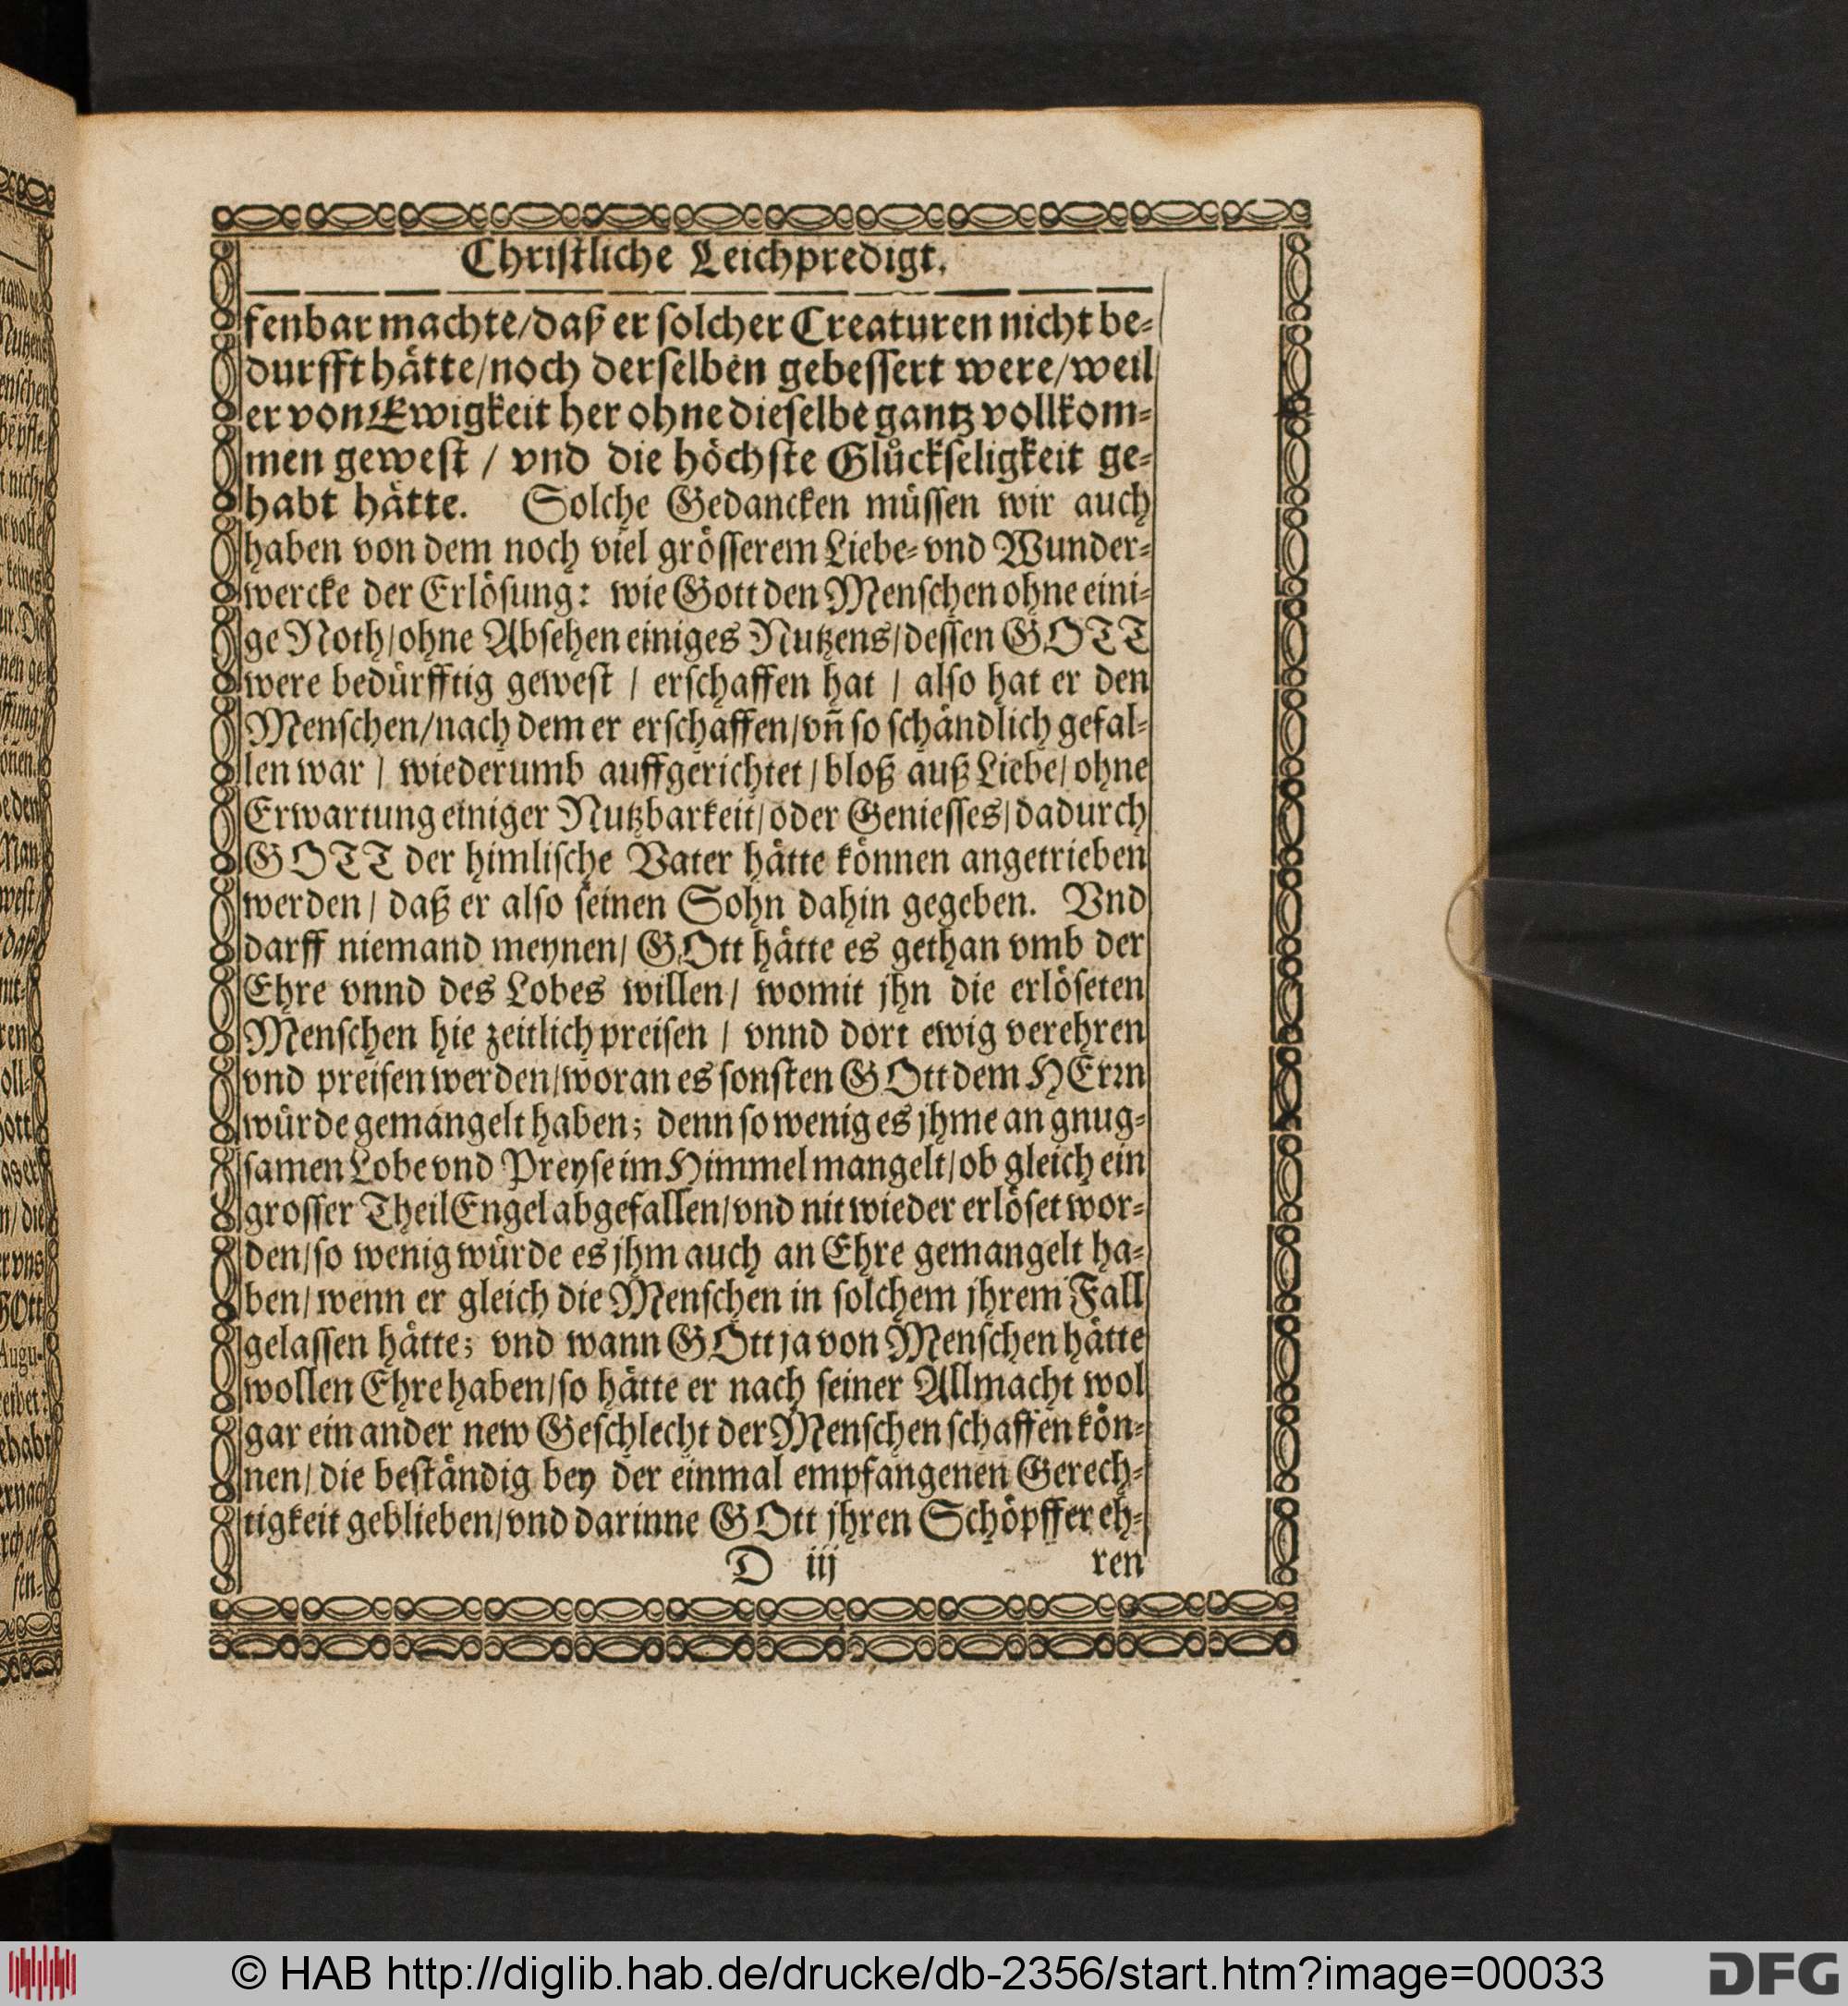 Christliche Leichpredigt.
fenbar machte/daß er ſolcher Creaturen nicht be-
durfft hätte/noch derſelben gebeſſert were/weil
er von Ewigkeit her ohne dieſelbe gantz vollkom-
men geweſt / vnd die höchſte Glückſeligkeit ge-
habt hätte. Solche Gedancken müſſen wir auch
haben von dem noch viel gröſſerem Liebe- vnd Wunder-
wercke der Erlöſung: wie Gott den Menſchen ohne eini-
ge Noth/ohne Abſehen einiges Nutzens/deſſen GOTT
were bedürfftig geweſt / erſchaffen hat / alſo hat er den
Menſchen/nach dem er erſchaffen/vñ ſo ſchändlich gefal-
len war / wiederumb auffgerichtet/bloß auß Liebe/ohne
Erwartung einiger Nutzbarkeit/oder Genieſſes/dadurch
GOTT der himliſche Vater hätte können angetrieben
werden/ daß er alſo ſeinen Sohn dahin gegeben. Vnd
darff niemand meynen/ GOtt hätte es gethan vmb der
Ehre vnnd des Lobes willen/ womit jhn die erlöſeten
Menſchen hie zeitlich preiſen / vnnd dort ewig verehren
vnd preiſen werden/woran es ſonſten GOtt dem HErꝛn
würde gemangelt haben; denn ſo wenig es jhme an gnug-
ſamen Lobe vnd Preyſe im Himmel mangelt/ob gleich ein
groſſer Theil Engel abgefallen/vnd nit wieder erlöſet wor-
den/ſo wenig würde es jhm auch an Ehre gemangelt ha-
ben/wenn er gleich die Menſchen in ſolchem jhrem Fall
gelaſſen hätte; vnd wann GOtt ja von Menſchen hätte
wollen Ehre haben/ſo hätte er nach ſeiner Allmacht wol
gar ein ander new Geſchlecht der Menſchen ſchaffen kön-
nen/die beſtändig bey der einmal empfangenen Gerech-
tigkeit geblieben/vnd darinne GOtt jhren Schöpffer eh-
D iij ren
© HAB http://diglib.hab.de/drucke/db-2356/start.htm?image=00033
DFG